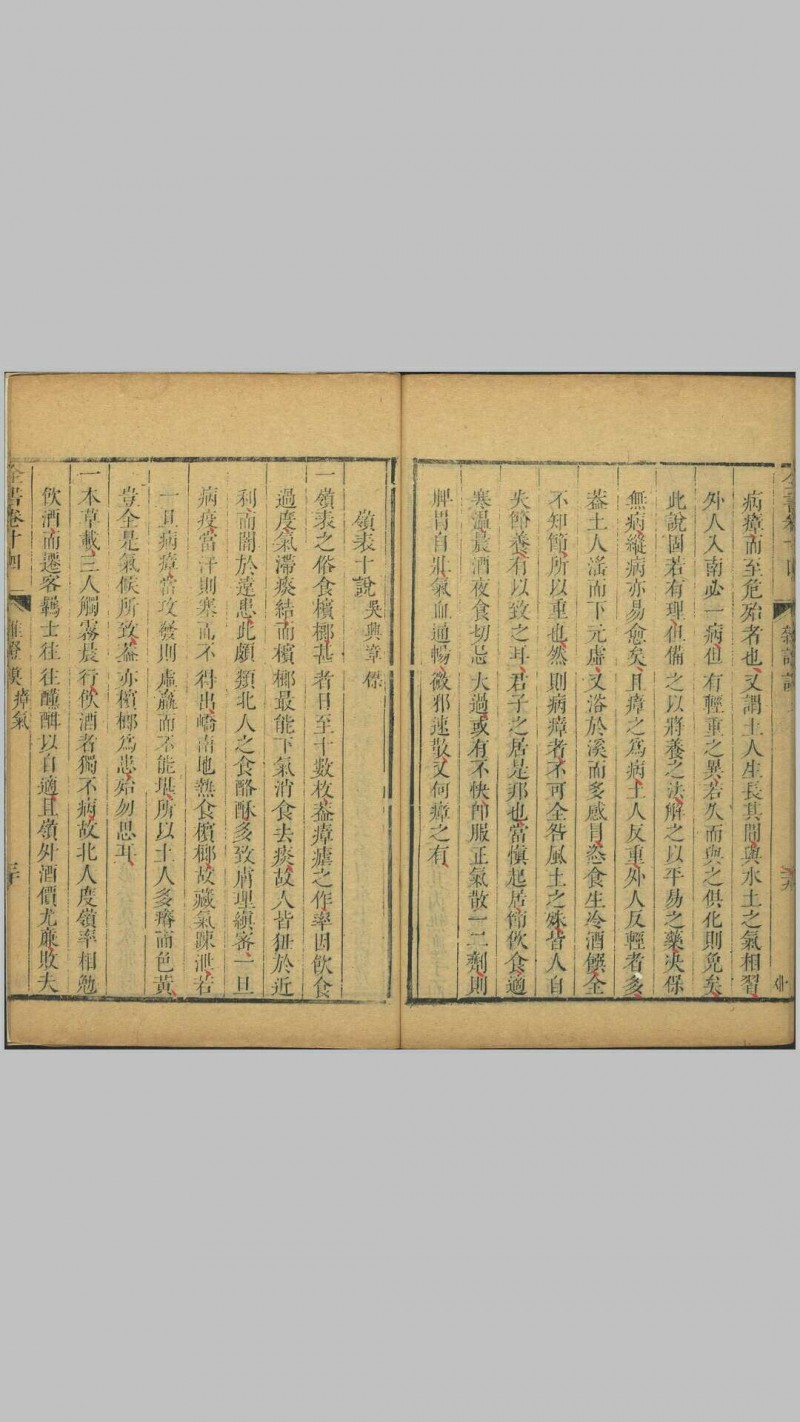 病瘴而至危殆者也又謂土人生長其間與水土之氣相習
外人入南必一病但有輕重之異若久而與之俱化則免矣
此說固若有理但備之以將養之法解之以平易之藥决保
無病縱病亦易愈矣且瘴之為病土人反重外人反輕者多
葢土人淫而下元虛又浴於溪而多感冐恣食生冷酒饌全
不知節所以重也然則病瘴者不可全咎風土之殊皆人自
失節養有以致之耳君子之居是邦也當慎起居節飲食適
寒溫晨酒夜食切忌大過或有不快卽服正氣散一二劑則
脾胃自壯氣血通暢微邪速散又何瘴之有
嶺表十說吳興章傑
一嶺表之俗食檳榔甚者日至十數枚葢瘴瘧之作率因飲食
過度氣滯痰結而檳榔最能下氣消食去痰故人皆狃於近
利而闇於遠患此頗類北人之食酪酥多致膚理縝密一旦
病疫當汗則寒而不得出嶠南地熱食檳榔故藏氣踈泄若
一旦病瘴當攻發則虛羸而不能堪所以土人多瘠而色黃
豈全是氣候所致葢亦檳榔為患殆勿思耳
一本草載三人觸霧晨行飲酒者獨不病故北人度嶺率相勉
飲酒而遷客羇士往往醺酣以自適且嶺外酒價尤廉敗夫
全書卷十四
瘴氣